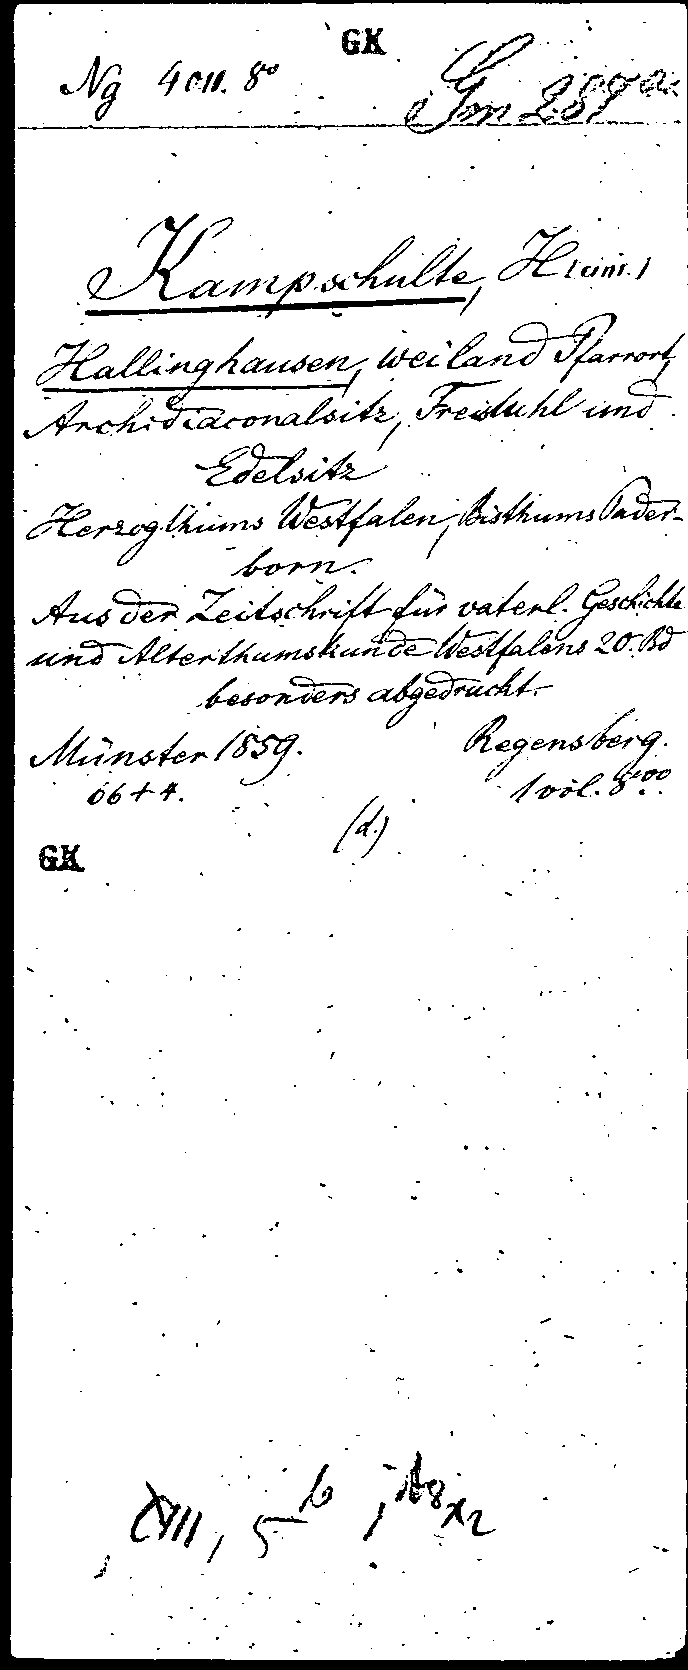 GK
Ng 4011. 8º
Gm 289 a.
Kampschulte, H(ein.)
Hallinghausen, weiland Pfarrort,
Archidiaconalsitz, Freistuhl und
Edelsitz
Herzogthums Westfalen, Bisthums Pader-
born.
Aus der Zeitschrift für vaterl. Geschichte
und Alterthumskunde Westfalens 20. Bd
besonders abgedruckt.
Münster 1859. Regensberg.
1 vol. 8º
(d.)
GK